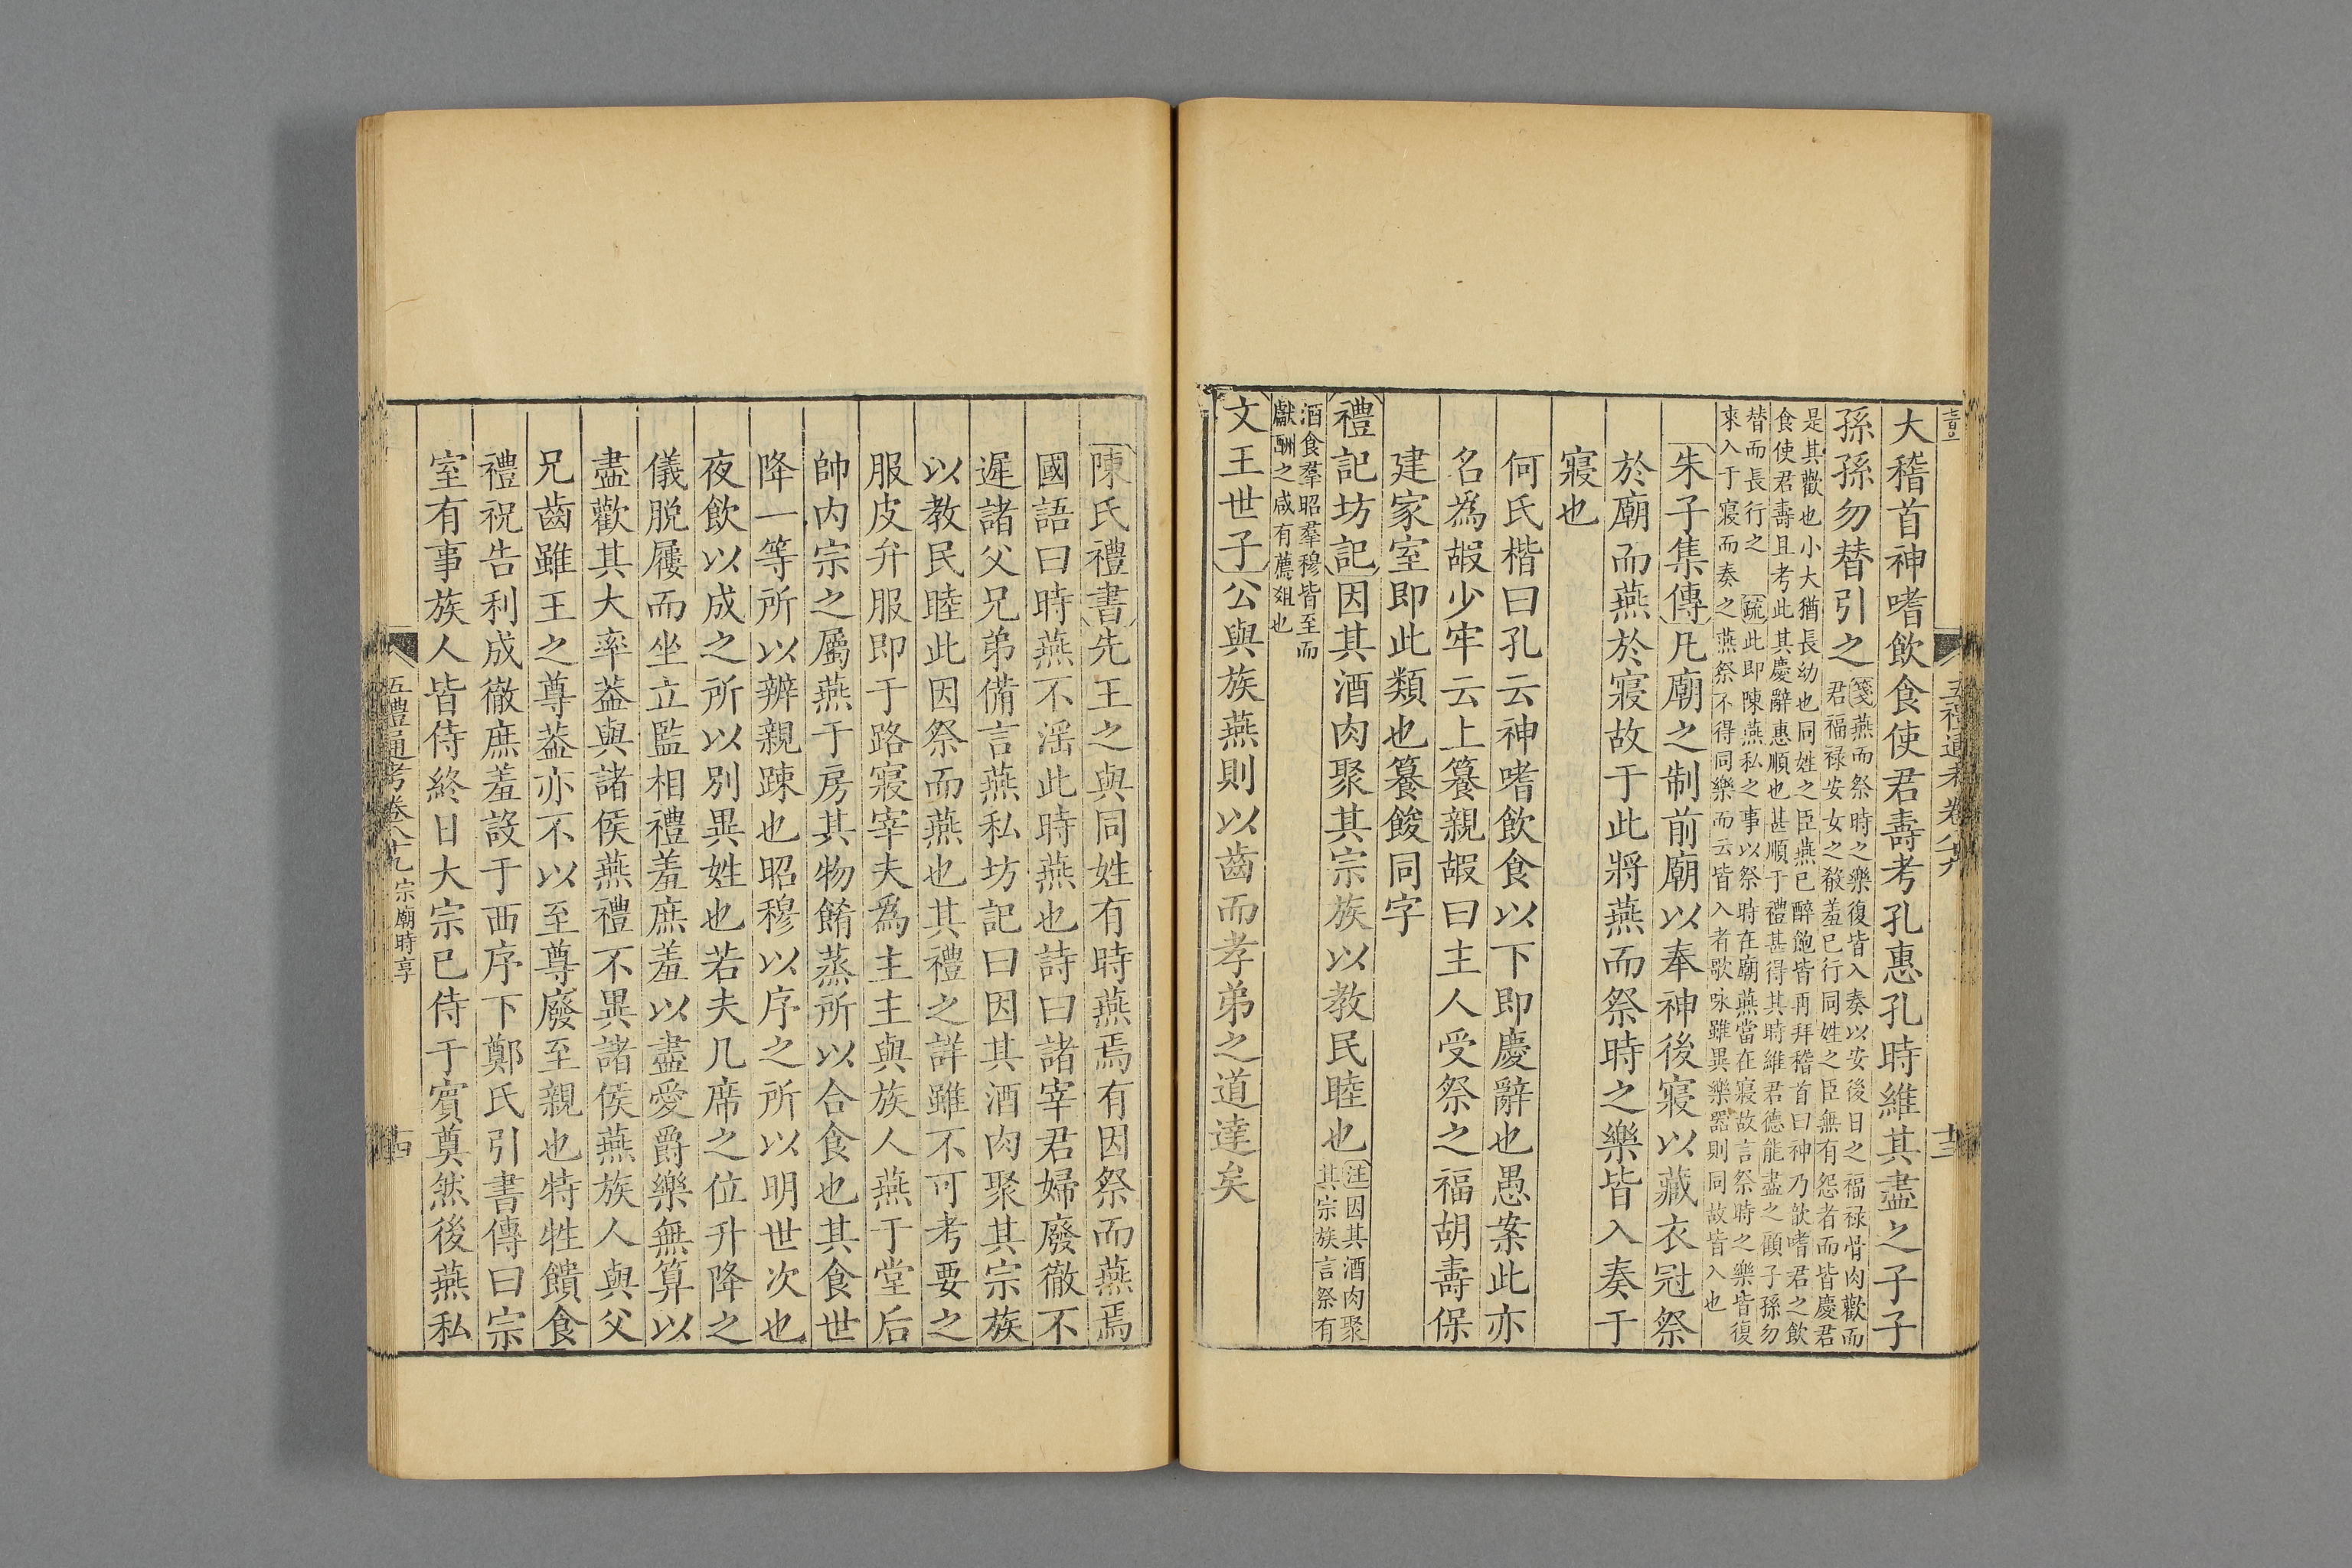 大稽首神嗜飲食使君壽考孔惠孔時維其盡之子子
孫孫勿替引之
箋燕而祭時之樂復皆入奏以安後日之福禄骨肉歡而
君福禄安女之殽羞已行同姓之臣無有怨者而皆慶君
是其歡也小大猶長幼也同姓之臣燕已醉飽皆再拜稽首曰神乃歆嗜君之飲
食使君壽且考此其慶辭惠順也甚順于禮甚得其時維君德能盡之顧子孫勿
替而長行之 疏此即陳燕私之事以祭時在廟燕當在寢故言祭時之樂皆復
來入于寢而奏之燕祭不得同樂而云皆入者歌咏雖異樂器則同故皆入也
朱子集傳凡廟之制前廟以奉神後寢以藏衣冠祭
於廟而燕於寢故于此將燕而祭時之樂皆入奏于
寢也
何氏楷曰孔云神嗜飲食以下即慶辭也愚案此亦
名為嘏少牢云上篹親嘏曰主人受祭之福胡壽保
建家室即此類也篹餕同字
禮記坊記因其酒肉聚其宗族以教民睦也
注因其酒肉聚
其宗族言祭有
酒食羣昭羣穆皆至而
獻酬之咸有薦俎也
文王世子公與族燕則以齒而孝弟之道達矣
陳氏禮書先王之與同姓有時燕焉有因祭而燕焉
國語曰時燕不淫此時燕也詩曰諸宰君婦廢徹不
遲諸父兄弟備言燕私坊記曰因其酒肉聚其宗族
以教民睦此因祭而燕也其禮之詳雖不可考要之
服皮弁服即于路寢宰夫爲主主與族人燕于堂后
帥内宗之屬燕于房其物餚蒸所以合食也其食世
降一等所以辨親疎也昭穆以序之所以明世次也
夜飲以成之所以別異姓也若夫几席之位升降之
儀脱屨而坐立監相禮羞庶羞以盡愛爵樂無算以
盡歡其大率葢與諸侯燕禮不異諸侯燕族人與父
兄齒雖王之尊葢亦不以至尊廢至親也特牲饋食
禮祝告利成徹庶羞設于西序下鄭氏引書傳曰宗
室有事族人皆侍終日大宗已侍于賓奠然後燕私
五禮通考卷八十九 宗廟時享